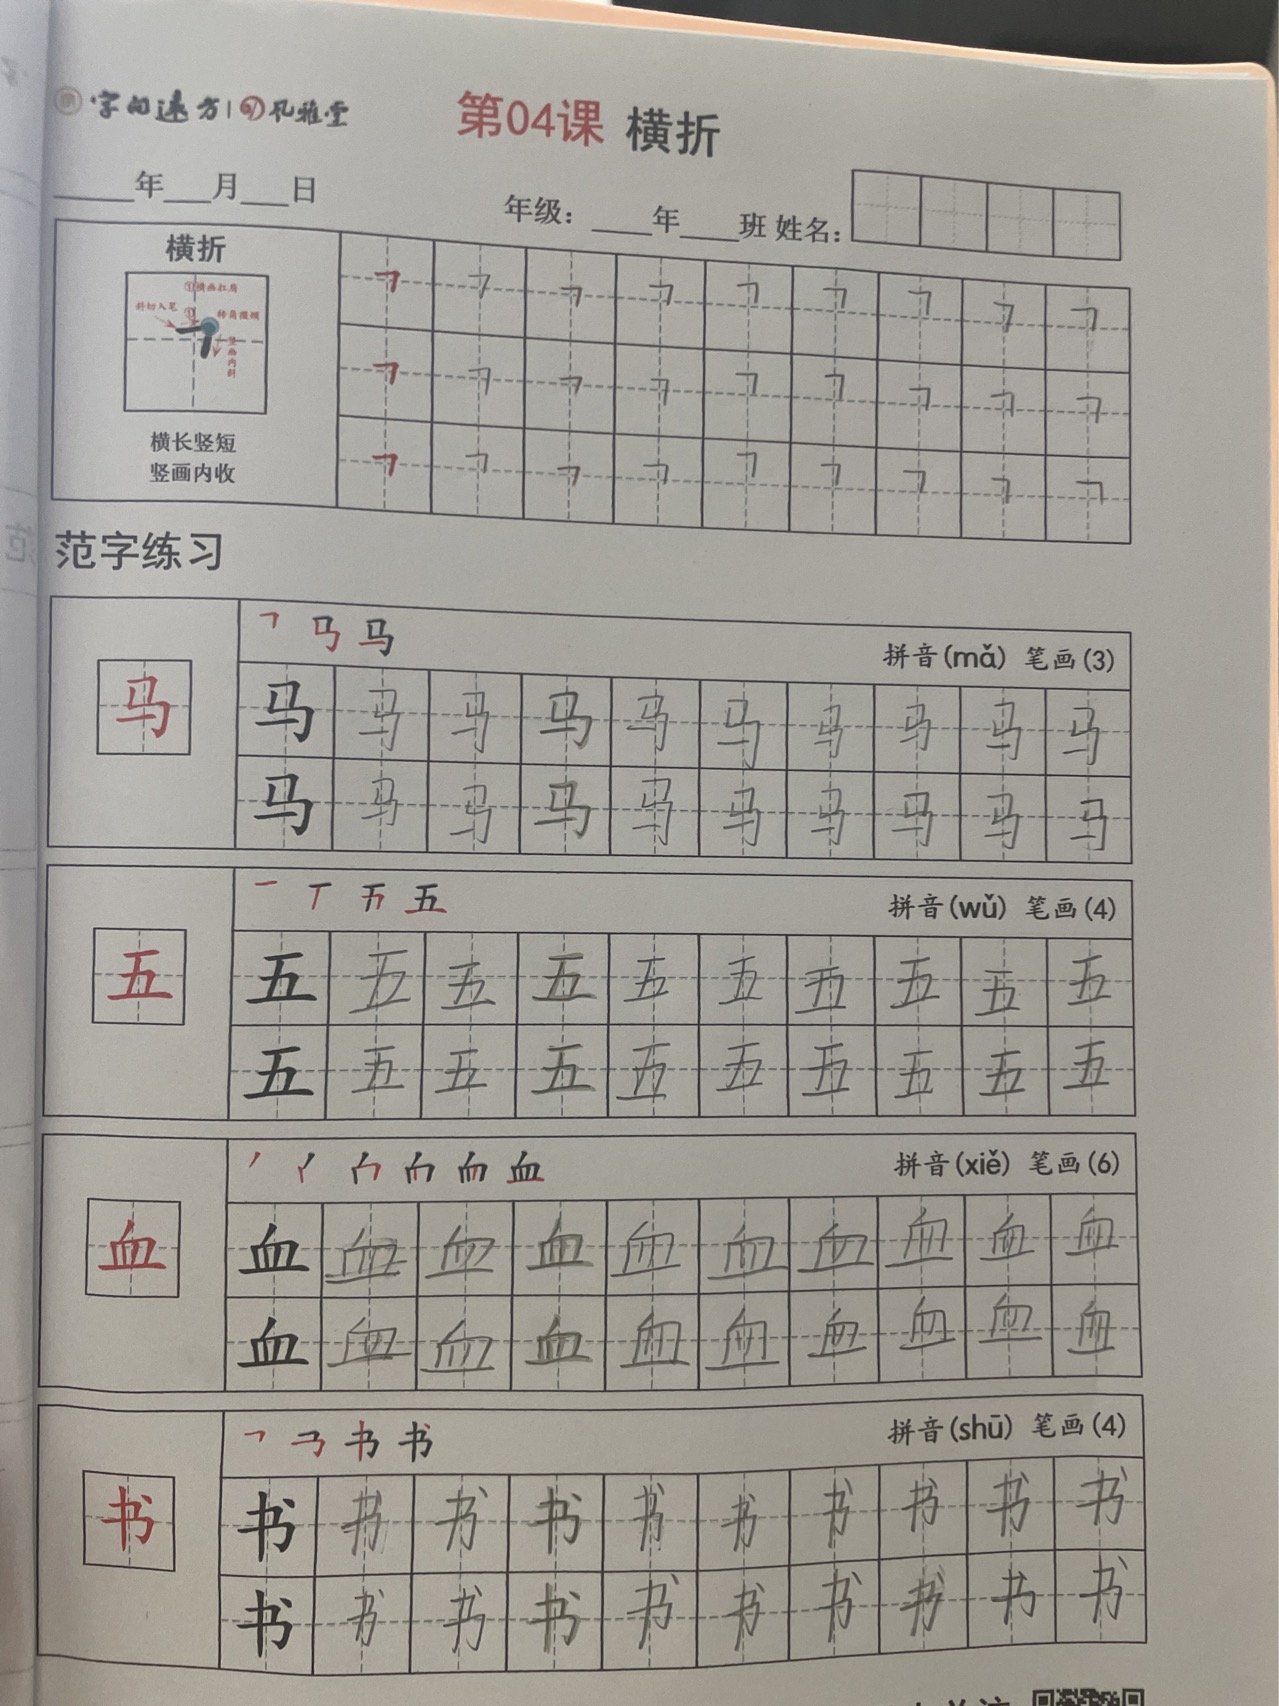 字的远方 | 风雅堂
第04课 横折
____年___月___日 年级：____年____班 姓名：
横折
①横画扛肩
斜切入笔 ① 转角微顿
竖画内斜
横长竖短
竖画内收
㇕ ㇕ ㇕ ㇕ ㇕ ㇕ ㇕ ㇕ ㇕
㇕ ㇕ ㇕ ㇕ ㇕ ㇕ ㇕ ㇕ ㇕
㇕ ㇕ ㇕ ㇕ ㇕ ㇕ ㇕ ㇕ ㇕
范字练习
马 拼音(mǎ) 笔画(3)
马
马 马 马 马 马 马 马 马 马 马
马 马 马 马 马 马 马 马 马 马
五 拼音(wǔ) 笔画(4)
五
五 五 五 五 五 五 五 五 五 五
五 五 五 五 五 五 五 五 五 五
血 拼音(xiě) 笔画(6)
血
血 血 血 血 血 血 血 血 血 血
血 血 血 血 血 血 血 血 血 血
书 拼音(shū) 笔画(4)
书
书 书 书 书 书 书 书 书 书 书
书 书 书 书 书 书 书 书 书 书